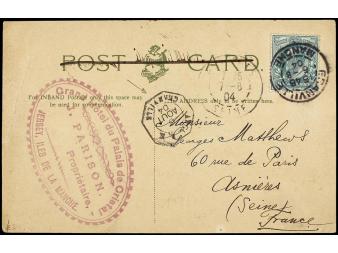 POST CARD
For INLAND Postage only this space may
be used for communication.
The ADDRESS only to be written here.
Grand Hotel du Palais de Cristal
PARISON
Propriétaire
JERSEY, ILES DE LA MANCHE
GRANVILLE
MANCHE
04
AOUT
04
Monsieur
Georges Matthews
60 rue de Paris
Asnières
(Seine)
France